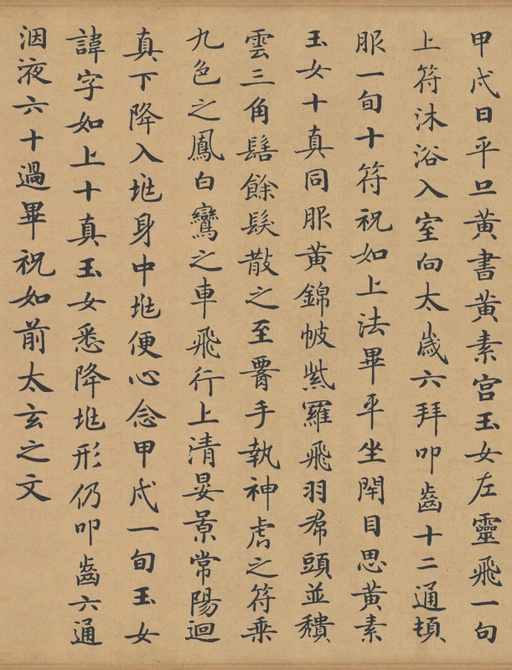 甲戌日平旦黃書黃素宮玉女左靈飛一旬
上符沐浴入室向太歲六拜叩齒十二通頓
服一旬十符祝如上法畢平坐閇目思黃素
玉女十真同服黃錦帔紫羅飛羽帬頭並穨
雲三角髻餘髮散之至腰手執神虎之符乘
九色之鳳白鸞之車飛行上清晏景常陽迴
真下降入垗身中垗便心念甲戌一旬玉女
諱字如上十真玉女悉降垗形仍叩齒六通
洇液六十過畢祝如前太玄之文